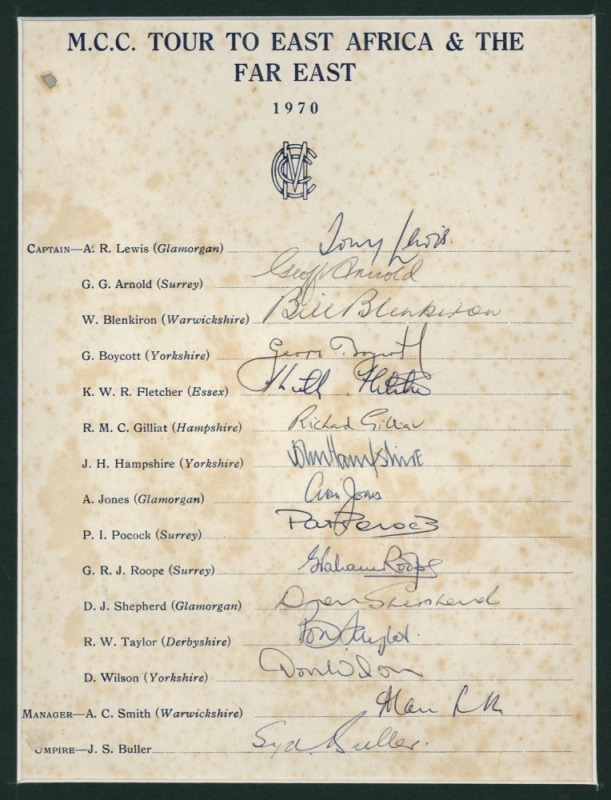 M.C.C. TOUR TO EAST AFRICA & THE
FAR EAST
1970
MCC
CAPTAIN—A. R. Lewis (Glamorgan) Tony Lewis
G. G. Arnold (Surrey) Geoff Arnold
W. Blenkiron (Warwickshire) Bill Blenkiron
G. Boycott (Yorkshire) Geoff Boycott
K. W. R. Fletcher (Essex) Keith Fletcher
R. M. C. Gilliat (Hampshire) Richard Gilliat
J. H. Hampshire (Yorkshire) John Hampshire
A. Jones (Glamorgan) Alan Jones
P. I. Pocock (Surrey) Pat Pocock
G. R. J. Roope (Surrey) Graham Roope
D. J. Shepherd (Glamorgan) Don Shepherd
R. W. Taylor (Derbyshire) Bob Taylor
D. Wilson (Yorkshire) Don Wilson
MANAGER—A. C. Smith (Warwickshire) Alan
UMPIRE—J. S. Buller Syd. Buller.